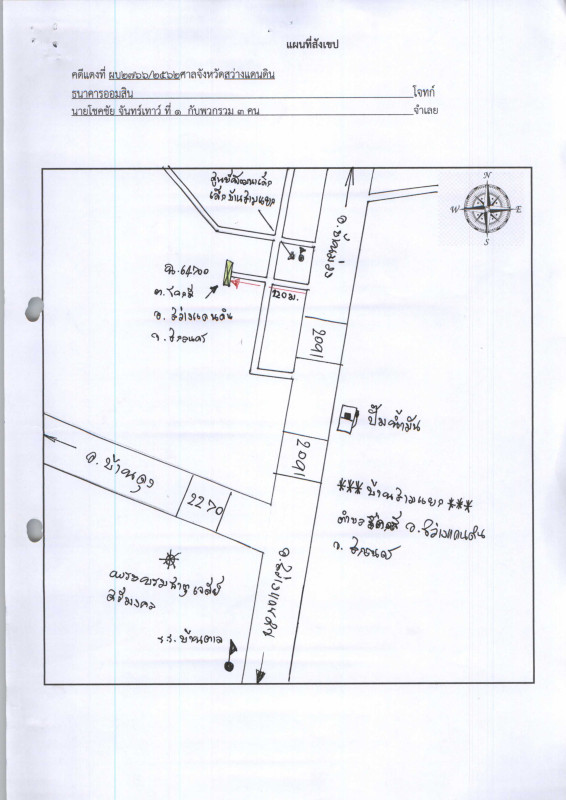 แผนที่สังเขป
คดีแดงที่ ผบ๒๗๖๖/๒๕๖๒ศาลจังหวัดสว่างแดนดิน
ธนาคารออมสิน โจทก์
นายโชคชัย จันทร์เทาว์ ที่ ๑ กับพวกรวม ๓ คน จำเลย
ศูนย์พัฒนาเด็ก
เล็กบ้านสามแยก
อ.บ้านม่วง
N
W E
S
น.64700
ต.
อ. สว่างแดนดิน
จ. สกลนคร
120 ม.
2091
ปั๊มน้ำมัน
2091
อ. บ้านดุง
2270
*** บ้านสามแยก ***
ตำบล อ.สว่างแดนดิน
จ. สกลนคร
อ.สว่างแดนดิน
พระบรมธาตุเจดีย์
ศรีมงคล
ร.ร.บ้านตาล